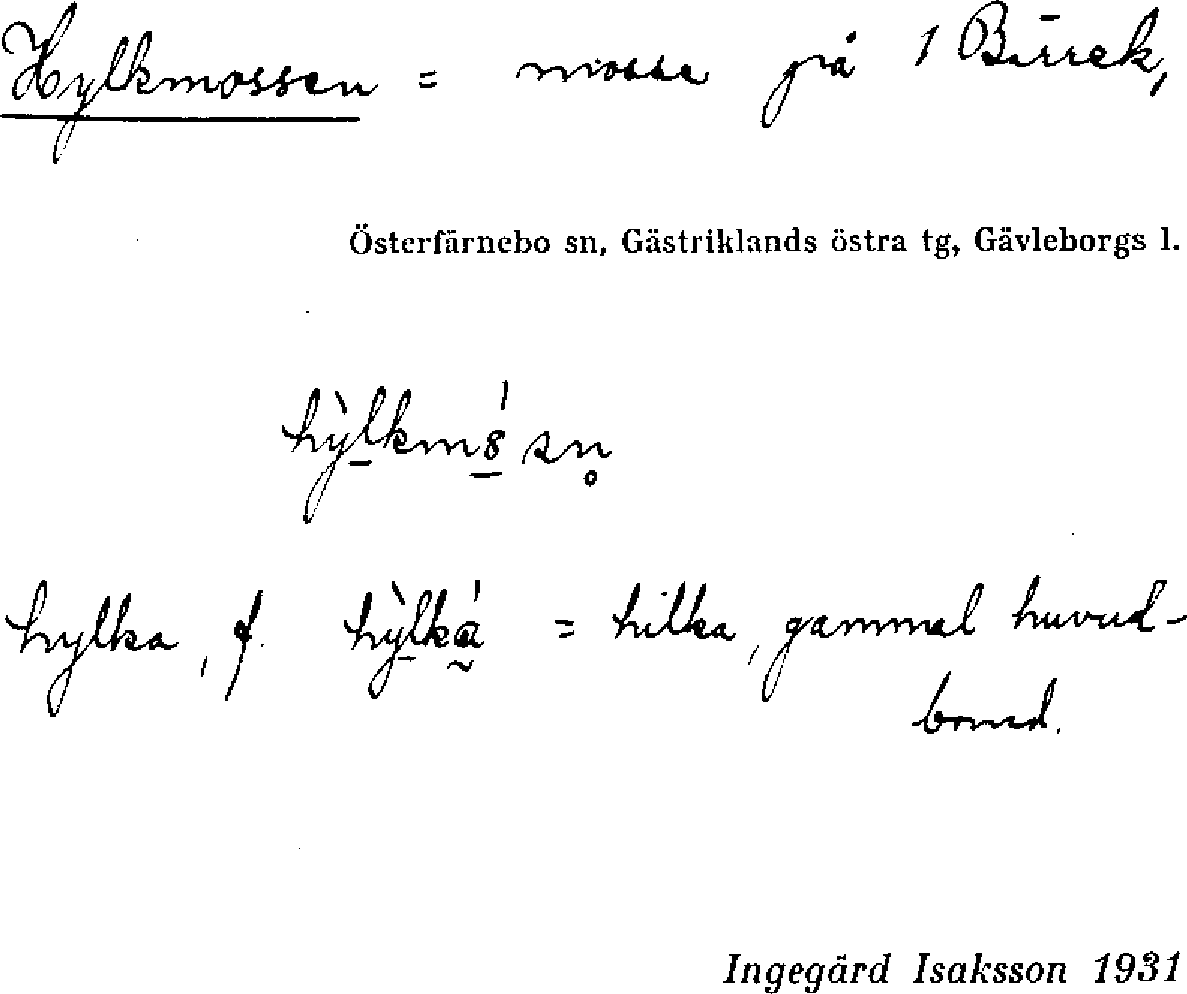 Hylkmossen = mosse på 1 Bärrek,
Österfärnebo sn, Gästriklands östra tg, Gävleborgs l.
hỳlkmósn̥
hylka, f. hỳlká = hilka, gammal huvud-
bonad.
Ingegärd Isaksson 1931